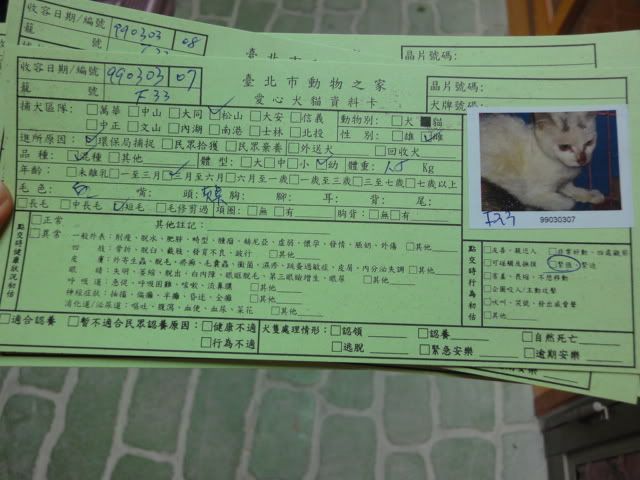 收容日期/編號 990303 08
籠 號 F33
臺北市動物之家
晶片號碼:
收容日期/編號 990303 07
籠 號 F33
臺北市動物之家
愛心犬貓資料卡
晶片號碼:
犬牌號碼:
捕犬區隊: □萬華 □中山 □大同 ☑松山 □大安 □信義 動物別: □犬 ■貓
□中正 □文山 □內湖 □南港 □士林 □北投 性 別: □雄 ☑雌
進所原因: ☑環保局捕捉 □民眾拾獲 □民眾棄養 □外送犬 □回收犬
品 種: ☑混種 □其他 體 型: □大 □中 □小 ☑幼 體重: 1.5 Kg
年齡: □未離乳 □一至三月 ☑三至六月 □六月至一歲 □一歲至三歲 □三至七歲 □七歲以上
毛 色: 白 嘴: 頭: 胸: 腳: 耳: 背: 尾:
□長毛 □中長毛 ☑短毛 □毛修剪過 項圈: □無 □有 胸背: □無 □有
點交時健康狀況初估
□正常
□異常
其他註記:
一般外表: 削瘦、脫水、脫肛、畸型、腫瘤、赫尼亞、虛弱、懷孕、發情、胚奶、外傷 □其他
四 肢: 骨折、脫臼、截肢、發育不良、跛行 □其他
皮 膚: 外寄生蟲、脫毛、疥癬、毛囊蟲、黴菌、濕疹、跳蚤過敏症、皮屑、內分泌失調 □其他
眼 睛: 失明、萎縮、脫出、白內障、眼瞼脫毛、第三眼瞼增生、眼屎 □其他
呼 吸 道: 急促、呼吸困難、咳嗽、流鼻膿 □其他
神經症狀: 抽搐、偏癱、半癱、昏迷、全癱 □其他
消化道/泌尿道: 嘔吐、腹瀉、血便、血尿、菜花 □其他
點交時行為初估
□友善、親近人 □非常好動、四處觀察
□可碰觸及撫摸 □緊張、緊迫
□害羞、畏縮、不想移動
□企圖咬人/主動逆擊
□吠叫、哭號、發出威脅聲
□其他
F33
99030307
□適合認養 □暫不適合民眾認養原因: □健康不適 □行為不適
犬隻處理情形: □認領 □認養 □自然死亡
□逃脫 □緊急安樂 □逾期安樂